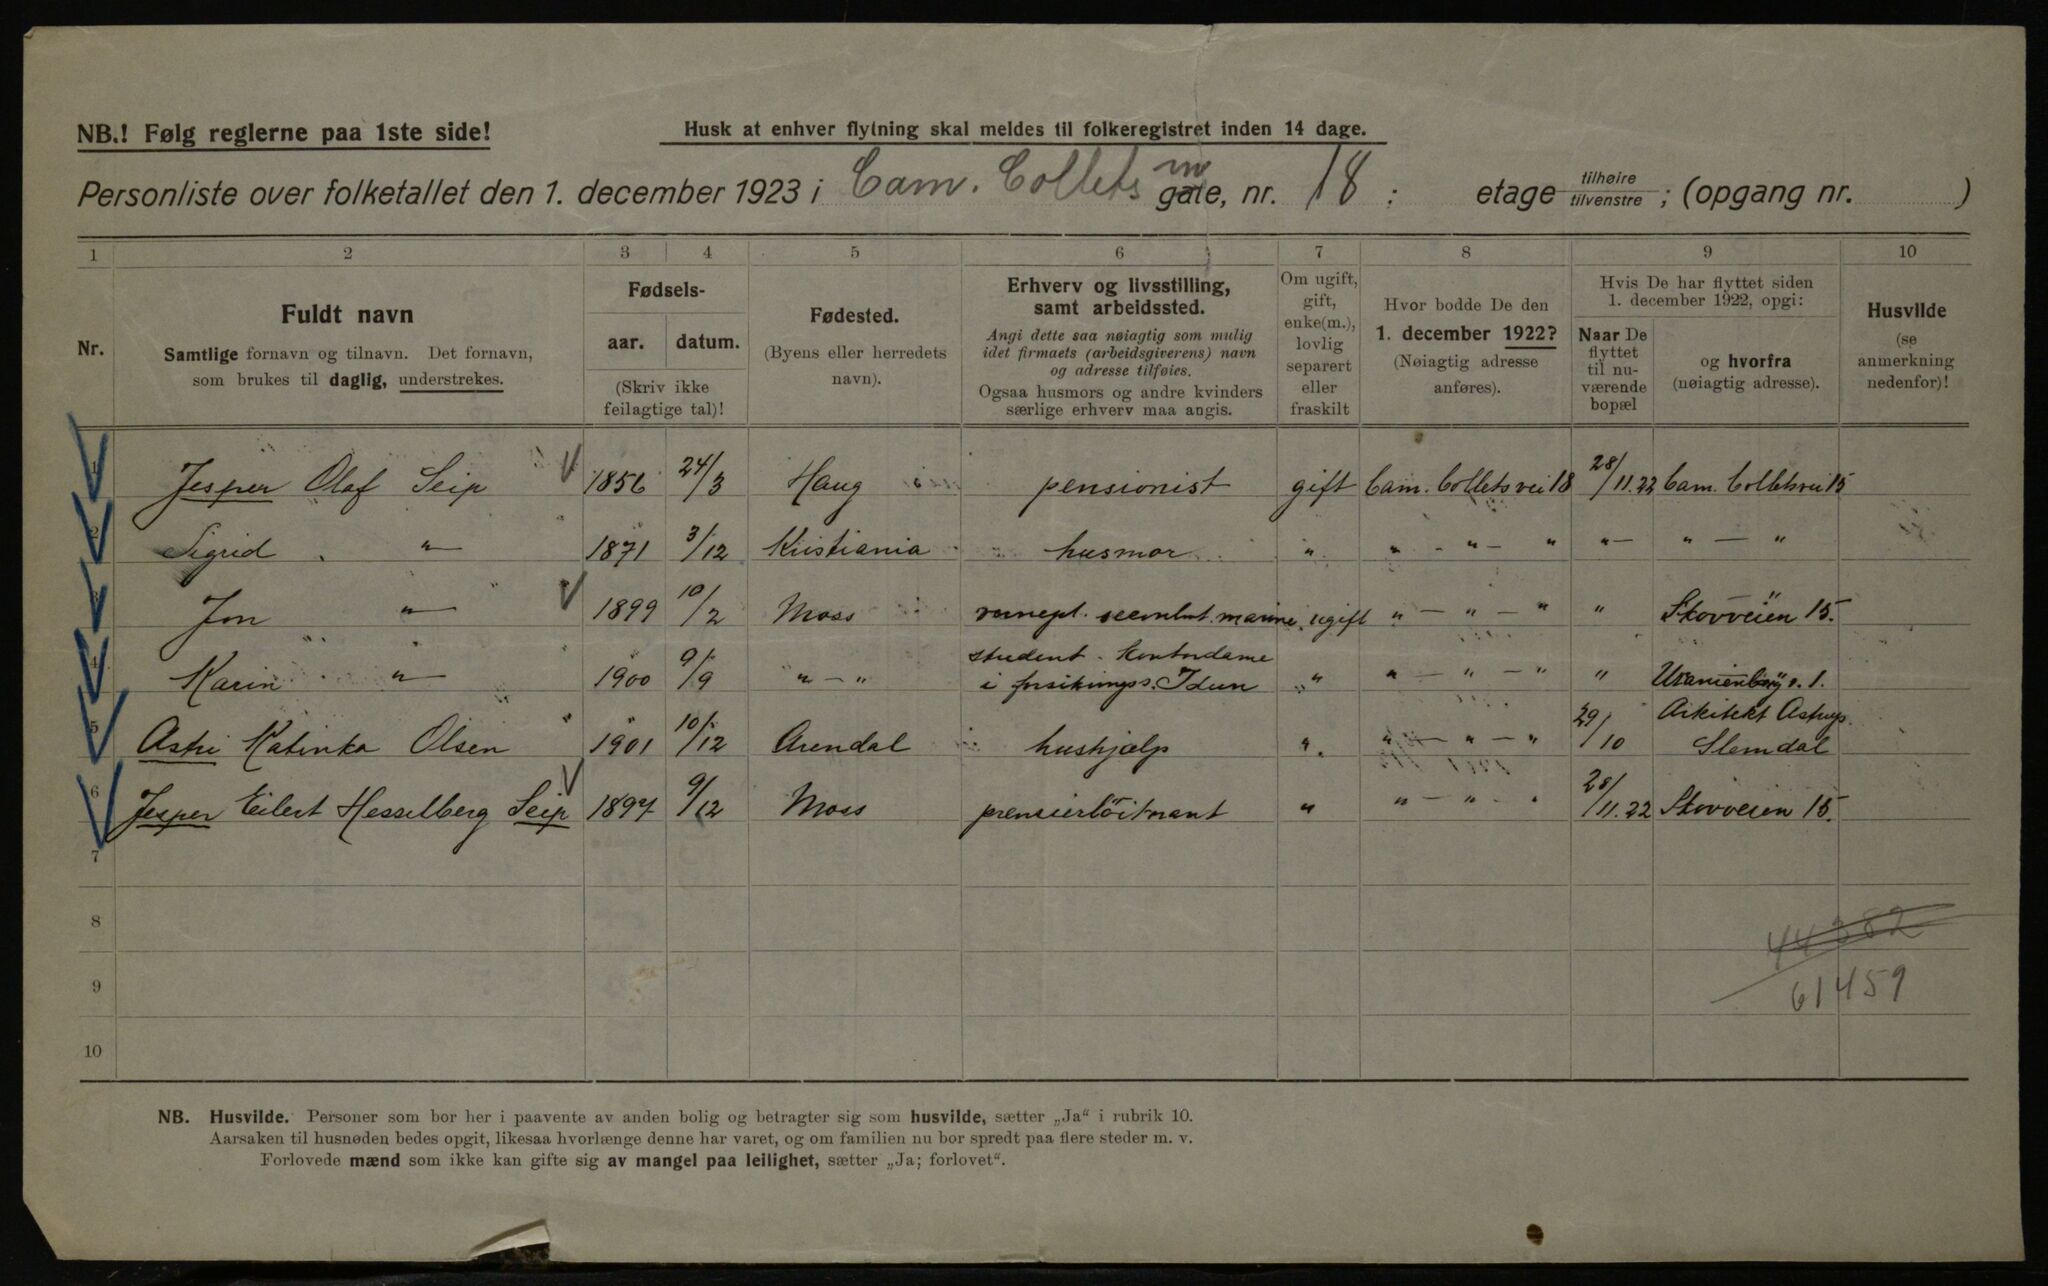 NB.! Følg reglerne paa 1ste side!
Husk at enhver flytning skal meldes til folkeregistret inden 14 dage.
Personliste over folketallet den 1. december 1923 i Cam. Collets gate, nr. 18 : etage tilhøire tilvenstre ; (opgang nr. )
1 2 3 4 5 6 7 8 9 10
Nr.
Fuldt navn
Samtlige fornavn og tilnavn. Det fornavn,
som brukes til daglig, understrekes.
Fødsels-
aar. datum.
(Skriv ikke
feilagtige tal)!
Fødested.
(Byens eller herredets
navn).
Erhverv og livsstilling,
samt arbeidssted.
Angi dette saa nøiagtig som mulig
idet firmaets (arbeidsgiverens) navn
og adresse tilføies.
Ogsaa husmors og andre kvinders
særlige erhverv maa angis.
Om ugift,
gift,
enke(m.),
lovlig
separert
eller
fraskilt
Hvor bodde De den
1. december 1922?
(Nøiagtig adresse
anføres).
Hvis De har flyttet siden
1. december 1922, opgi:
Naar De
flyttet
til nu-
værende
bopæl
og hvorfra
(nøiagtig adresse).
Husvilde
(se
anmerkning
nedenfor)!
1 Jesper Olaf Seip 1856 24/3 Haug pensionist gift Cam. Colletsvei 18 28/11.22 Cam. Colletsvei 15
2 Sigrid " 1871 3/12 Kristiania husmor " " - " - " " - " - "
3 Jon " 1899 10/2 Moss marine ugift " - " - " " Skovveien 15.
4 Karin " 1900 9/9 " - " student. Kontordame
i forsikringss. Idun " " - " - " " Uranienborg v. 1.
5 Astri Katinka Olsen 1901 10/12 Arendal hushjælp " " - " - " 29/10 Arkitekt Astrup.
Slemdal
6 Jesper Eilert Hesselberg Seip 1897 9/12 Moss premierløitnant " " - " - " 28/11.22 Skovveien 15.
7
8
44382
9
61459
10
NB. Husvilde. Personer som bor her i paavente av anden bolig og betragter sig som husvilde, sætter „Ja“ i rubrik 10.
Aarsaken til husnøden bedes opgit, likesaa hvorlænge denne har varet, og om familien nu bor spredt paa flere steder m. v.
Forlovede mænd som ikke kan gifte sig av mangel paa leilighet, sætter „Ja; forlovet“.